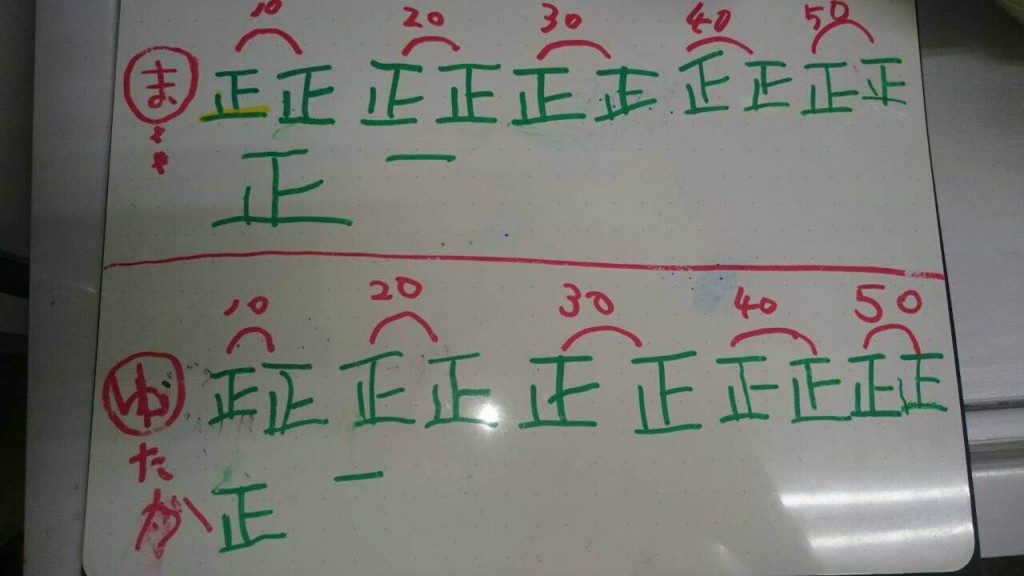 10 20 30 40 50
ま 正 正 正 正 正 正 正 正 正 正
正 一
10 20 30 40 50
ゆ 正 正 正 正 正 正 正 正 正 正
た
か 正 一